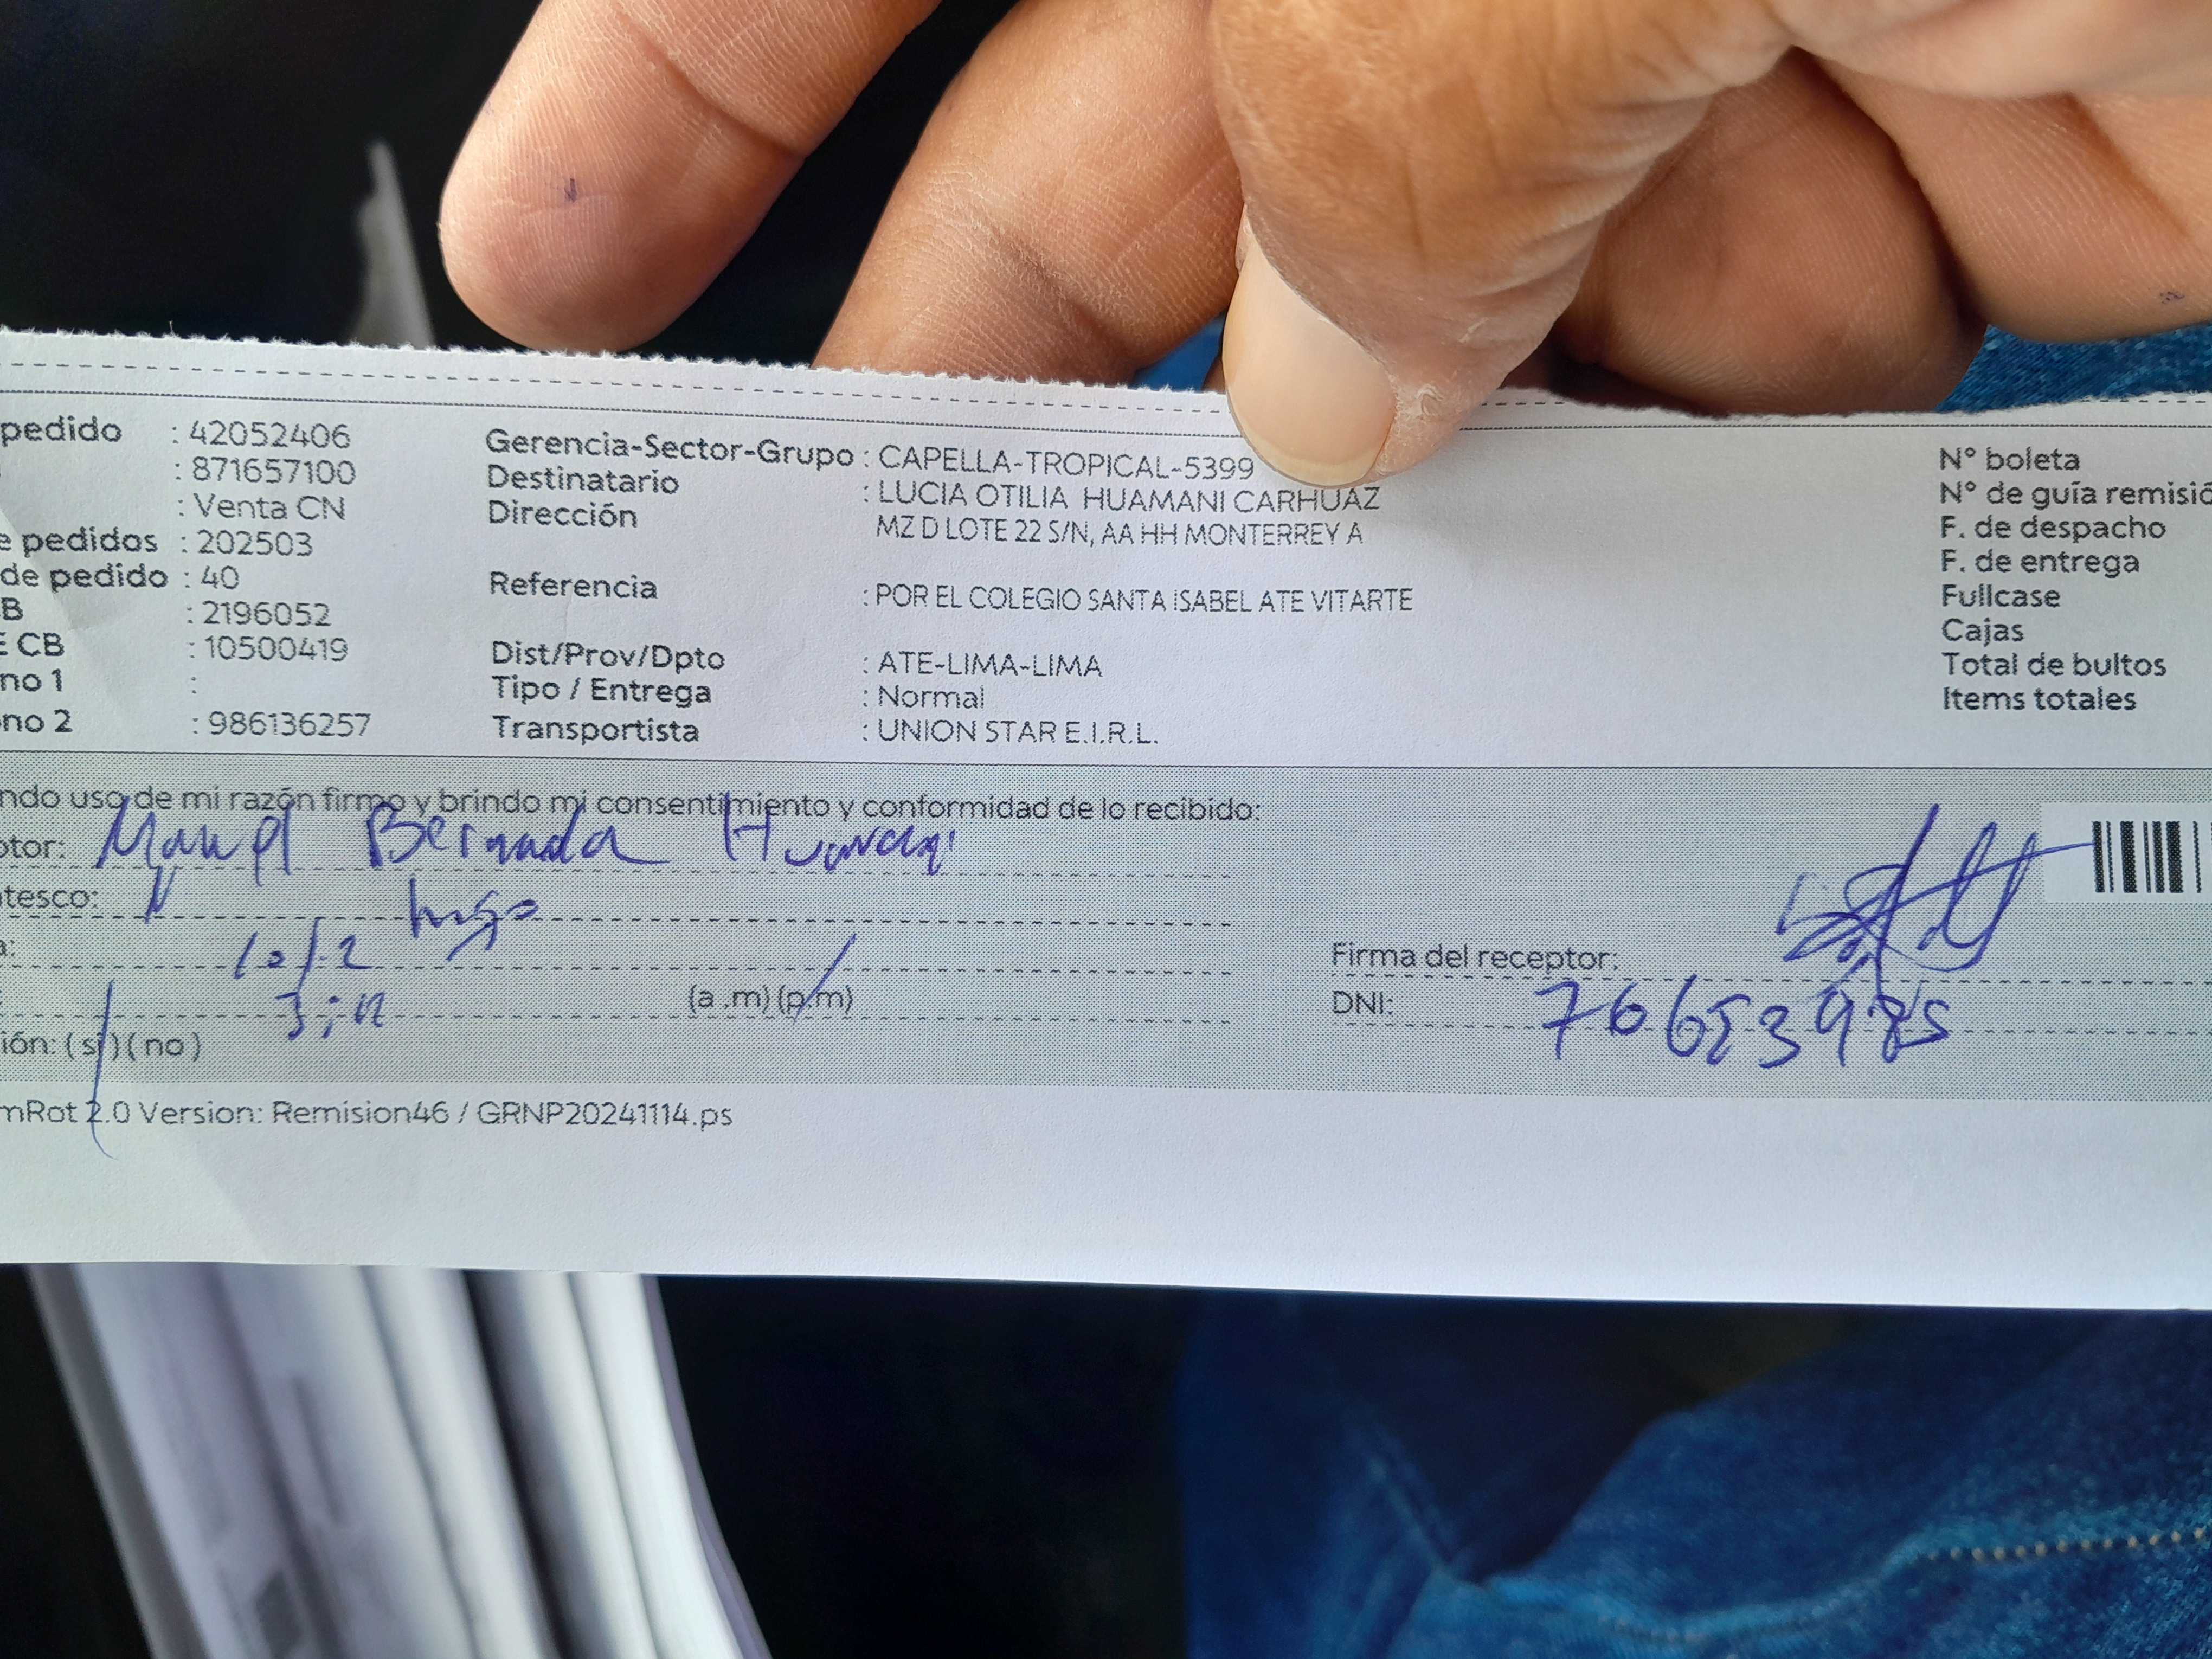 pedido : 42052406 Gerencia-Sector-Grupo : CAPELLA-TROPICAL-5399 N° boleta
: 871657100 Destinatario : LUCIA OTILIA HUAMANI CARHUAZ N° de guía remisió
: Venta CN Dirección MZ D LOTE 22 S/N, AA HH MONTERREY A F. de despacho
e pedidos : 202503 F. de entrega
de pedido : 40 Referencia : POR EL COLEGIO SANTA ISABEL ATE VITARTE Fullcase
B : 2196052 Cajas
E CB : 10500419 Dist/Prov/Dpto : ATE-LIMA-LIMA Total de bultos
no 1 : Tipo / Entrega : Normal Items totales
no 2 : 986136257 Transportista : UNION STAR E.I.R.L.
ndo uso de mi razón firmo y brindo mi consentimiento y conformidad de lo recibido:
ptor:
tesco: hijo
a: 10/2 Firma del receptor:
(a .m) (p.m) DNI:
ión: ( si ) ( no )
mRot 2.0 Version: Remision46 / GRNP20241114.ps